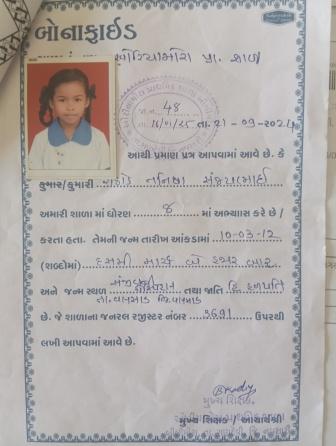 બોનાફાઈડ
પ્રા. શાળા
48
તા. 21-09-2024
આથી પ્રમાણ પત્ર આપવામાં આવે છે. કે
કુમાર/કુમારી રાઠોડ તનિષા સંજયભાઈ
અમારી શાળા માં ધોરણ ૭ માં અભ્યાસ કરે છે /
કરતા હતા. તેમની જન્મ તારીખ આંકડામાં 10-03-12
(શબ્દોમાં) દસમી માર્ચ બે હજાર બાર
અને જન્મ સ્થળ તથા જાતિ હિ. હળપતિ
તા. વલસાડ જિ. વલસાડ
છે. જે શાળાના જનરલ રજીસ્ટર નંબર 3691 ઉપરથી
લખી આપવામાં આવે છે.
મુખ્ય શિક્ષક
મુખ્ય શિક્ષક / આચાર્યશ્રી